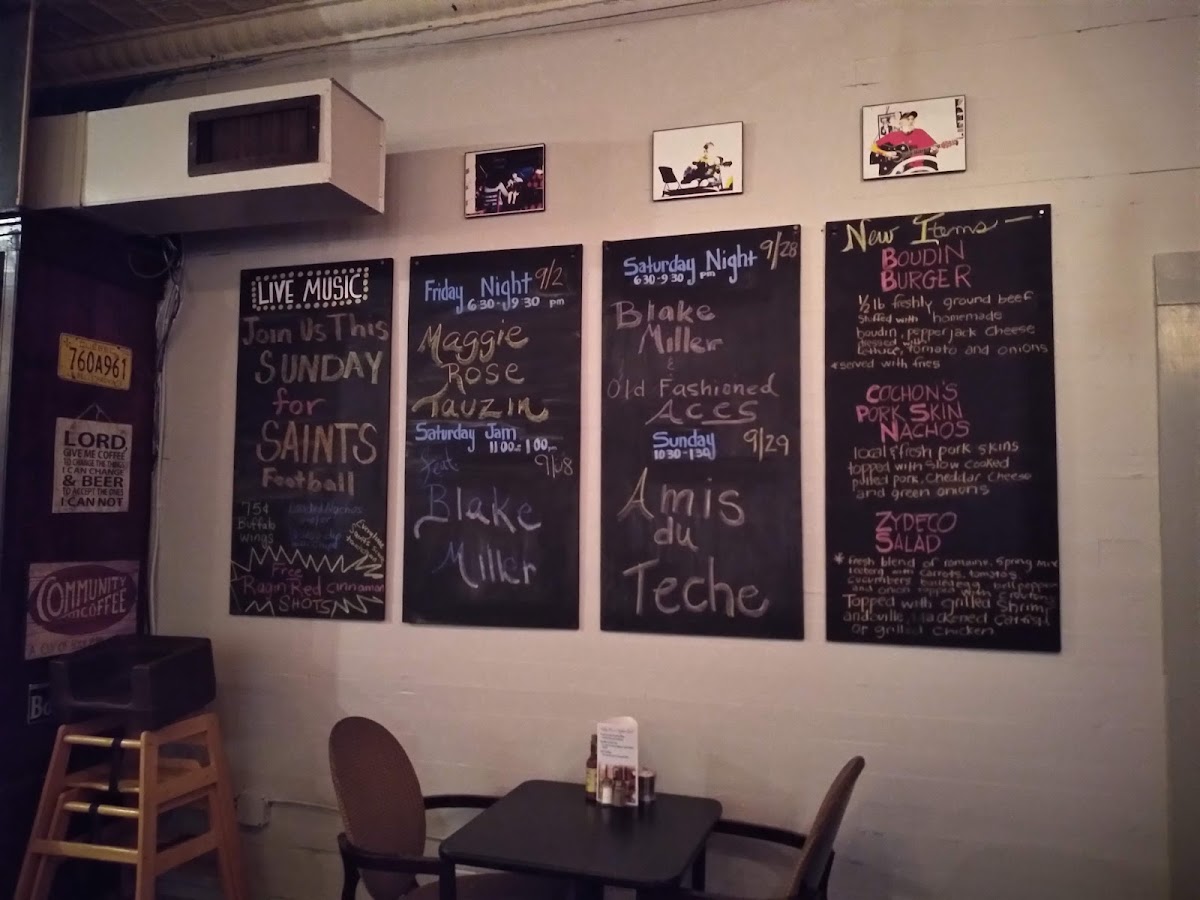 LIVE MUSIC
Join Us This
SUNDAY
for
SAINTS
Football
75¢
Buffalo
wings
Free
Ragin Red cinnamon
SHOTS
Friday Night 9/2
6:30-9:30 pm
Maggie
Rose
Tauzin
Saturday Jam
11:00 1:00 pm
feat
Blake
Miller
Saturday Night 9/28
6:30-9:30 pm
Blake
Miller
&
Old Fashioned
ACES
Sunday 9/29
10:30-1:30
Amis
du
Teche
New Items
BOUDIN
BURGER
1/2 lb freshly ground beef
stuffed with homemade
boudin, pepperjack cheese
dressed with
lettuce, tomato and onions
*served with fries
COCHON'S
PORK SKIN
NACHOS
local & fresh pork skins
topped with slow cooked
pulled pork, cheddar cheese
and green onions
ZYDECO
SALAD
* fresh blend of romaine, spring mix
iceberg with carrots, tomatos,
cucumbers, boiled egg, bell pepper
and onion topped with croutons
Topped with grilled shrimp
andouille, blackened catfish
or grilled chicken
760A961
LORD,
GIVE ME COFFEE
TO CHANGE THE THINGS
I CAN CHANGE
& BEER
TO ACCEPT THE ONES
I CAN NOT
COMMUNITY
COFFEE